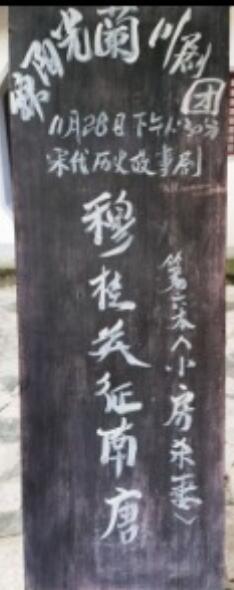 阳光蘭川剧团
11月28日下午1:30分
宋代历史故事剧
穆桂英征南唐
第六本〈小房杀妻〉